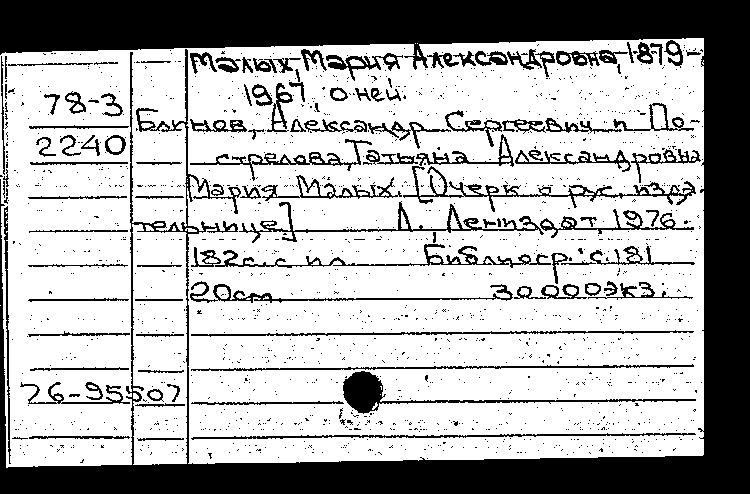 Малых, Мария Александровна, 1879-
1967, о ней.
78-3
Блинов, Александр Сергеевич и По-
2240
стрелова, Татьяна Александровна
Мария Малых. [Очерк о рус. изда-
тельнице] Л., Лениздат, 1976.
182с. с ил. Библиогр.: с. 181
20см. 30.000экз.
76-95507